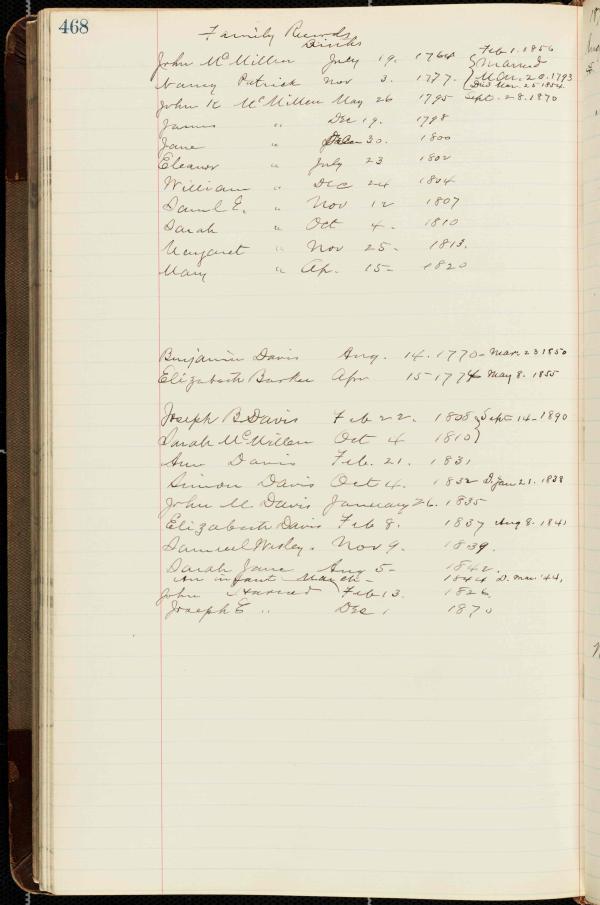 468
Family Records
Births
John McMillen July 19. 1764 Feb 1. 1856
Nancy Patrick Nov 3. 1777. } Married Mar. 20. 1793
Died Mar. 25 1854
John K McMillen May 26 1795 Sept. 28. 1870
James " Dec 19. 1798
Jane " 30. 1800
Eleanor " July 23 1802
William " Dec 24 1804
Saml E. " Nov 12 1807
Sarah " Oct 4. 1810
Margaret " Nov 25- 1813.
Mary " Ap. 15- 1820
Benjamin Davis Aug. 14. 1770- Mar. 23 1850
Elizabeth Barker Apr 15- 1774 May 8. 1855
Joseph B Davis Feb 22. 1808 } Sept 14- 1890
Sarah McMillen Oct 4 1810 }
Ann Davis Feb. 21. 1831
Simon Davis Oct 4. 1832 D. Jan 21. 1838
John M Davis January 26. 1835
Elizabeth Davis Feb 8. 1837 Aug 8. 1841
Samuel Wesley. Nov 9. 1839.
Sarah Jane Aug 5- 1842.
An infant March- 1844 D. Mar '44.
John Feb 13. 1826
Joseph E " Dec 1 1870